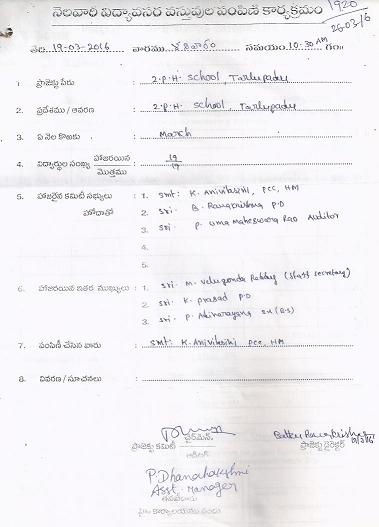 నెలవారి విద్యావసర వస్తువుల పంపిణీ కార్యక్రమం
1920
26-03/6
తేది. 19-03-2016 వారము శనివారం సమయం 10-30 AM గం॥
1. ప్రాజెక్టు పేరు : Z.P.H. School, Tarlupadu
2. ప్రదేశము / ఆవరణ : Z.P.H. School, Tarlupadu
3. ఏ నెల కొఱకు : March
4. విద్యార్థుల సంఖ్య హాజరయిన : 19
మొత్తము 19
5. హాజరైన కమిటీ సభ్యులు : 1. Smt: K. Anivitasini, PCC, HM
హోదాతో 2. Sri B. Ramakrishna P.D
3. Sri. P. Uma Maheswara Rao Auditor
4.
5.
6. హాజరయిన ఇతర ముఖ్యులు : 1. Sri. M. Velugonda Reddy (Staff Secretary)
2. Sri. K. Prasad P.D
3. Sri. P. Adinarayana S.A (B.S)
7. పంపిణీ చేసిన వారు : Smt: K. Anivitasini PCC, HM
8. వివరణ / సూచనలు :
ఛైర్మెన్,
ప్రాజెక్టు కమిటీ
ప్రాజెక్టు డైరెక్టర్
ఆడిటర్
P. Dhanalakshmi
Asst. Manager
హెడ్ కార్యాలయము నందు